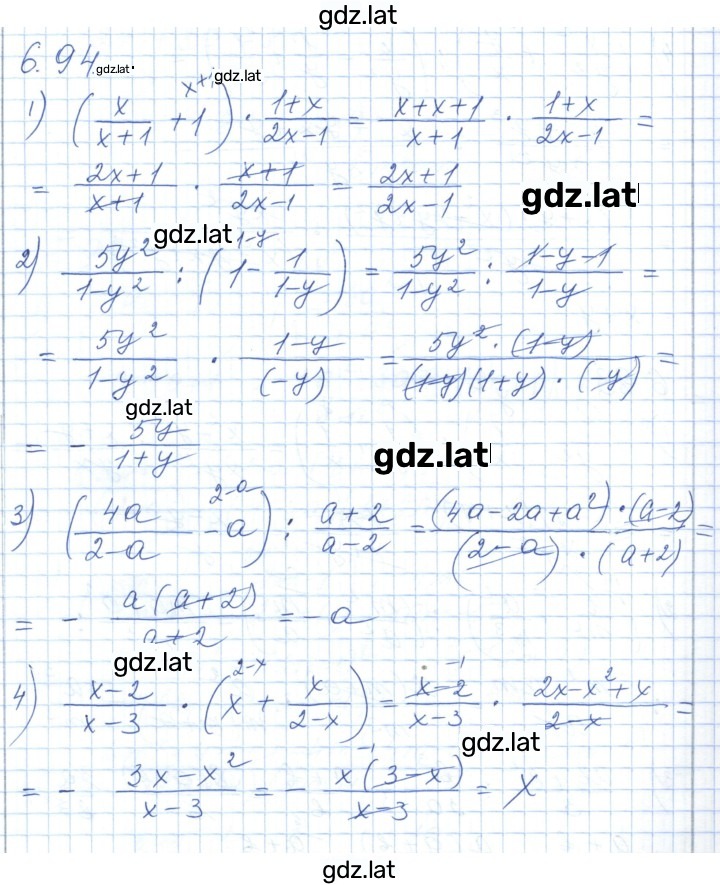 gdz.lat
6.94. gdz.lat
1) (x/(x+1) + 1^(x+1)) · (1+x)/(2x-1) = (x+x+1)/(x+1) · (1+x)/(2x-1) = gdz.lat
= (2x+1)/(x+1) · (x+1)/(2x-1) = (2x+1)/(2x-1) gdz.lat
gdz.lat
2) 5y²/(1-y²) : (1^(1-y) - 1/(1-y)) = 5y²/(1-y²) : (1-y-1)/(1-y) =
= 5y²/(1-y²) · (1-y)/(-y) = 5y²·(1-y)/((1-y)(1+y)·(-y)) =
gdz.lat
= - 5y/(1+y) gdz.lat
3) (4a/(2-a) - a^(2-a)) : (a+2)/(a-2) = (4a-2a+a²)·(a-2)/((2-a)·(a+2)) =
= - a(a+2)/(a+2) = -a
gdz.lat
4) (x-2)/(x-3) · (x^(2-x) + x/(2-x)) = (x-2)^(-1)/(x-3) · (2x-x²+x)/(2-x) =
gdz.lat
= - (3x-x²)/(x-3) = - x(3-x)^(-1)/(x-3) = x
gdz.lat